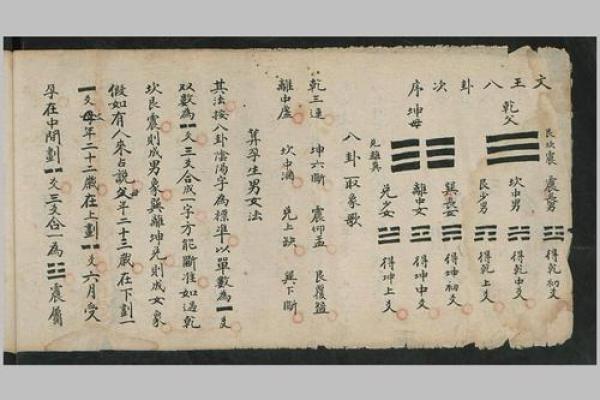 文王八卦次序
乾父
坤母
艮坎震
兌離巽
震長男 得乾初爻
坎中男 得乾中爻
艮少男 得乾上爻
巽長女 得坤初爻
離中女 得坤中爻
兌少女 得坤上爻
八卦取象歌
乾三連 坤六斷 震仰盂 艮覆盌
離中虛 坎中滿 兌上缺 巽下斷
算孕生男女法
其法按八卦陰陽字為標準以單數為一爻
双數為爻三爻合成一字方能斷准如遇乾
坎艮震則成男象巽離坤兌則成女象
假如有人來占說父年二十三歲在下劃一
爻母年二十二歲在上劃爻六月受
孕在中間劃爻三爻合一為震